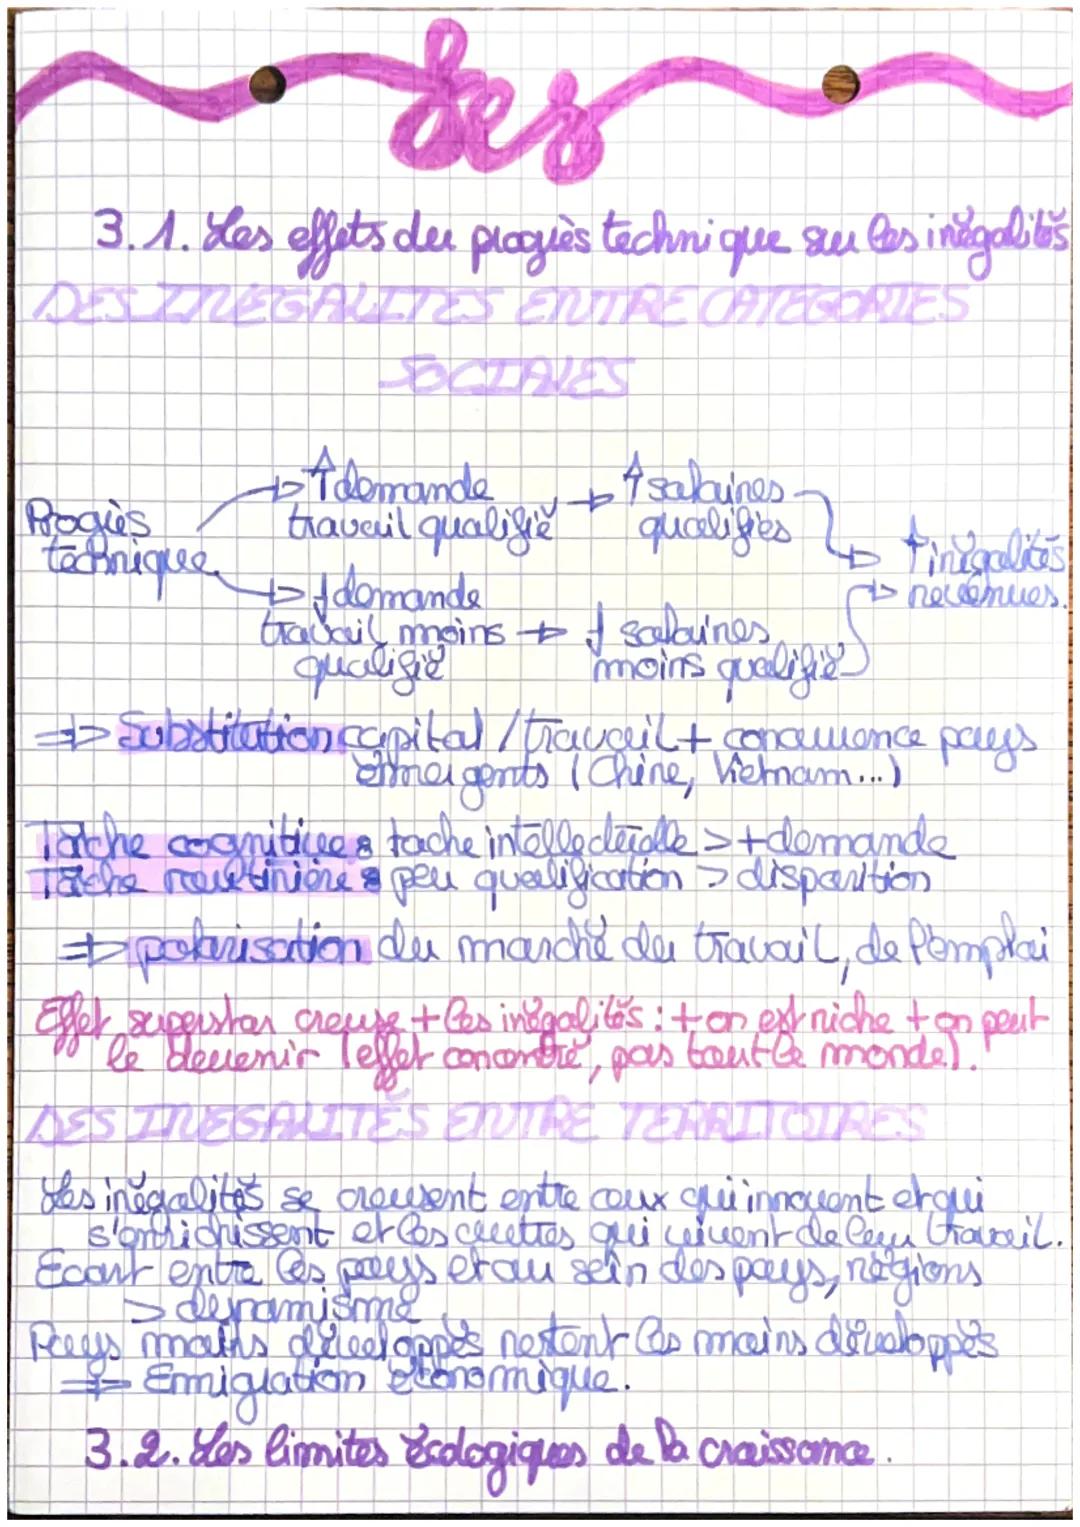 Ses
3.1. Les effets du progrès technique sur les inégalités
DES INEGALITES ENTRE CATEGORIES
SOCIALES
Progrès technique
↑ demande travail qualifié → ↑ salaires qualifiés
↓ demande travail moins qualifié → ↓ salaires moins qualifié
↑ inégalités revenues.
=> Substitution capital / travail + concurrence pays
émergents (Chine, Vietnam...)
Tâche cognitive : tache intellectuelle > + demande
Tâche routinière : peu qualification > disparition
=> polarisation du marché du travail, de l'emploi
Effet superstar creuse + les inégalités : + on est riche + on peut
le devenir (effet concentré, pas tout le monde).
DES INEGALITÉS ENTRE TERRITOIRES
Les inégalités se creusent entre ceux qui innovent et qui
s'enrichissent et les autres qui vivent de leur travail.
Ecart entre les pays et au sein des pays, régions
> dynamisme
Pays moins développés restent les moins développés
=> Emigration économique.
3.2. Les limites écologiques de la croissance.